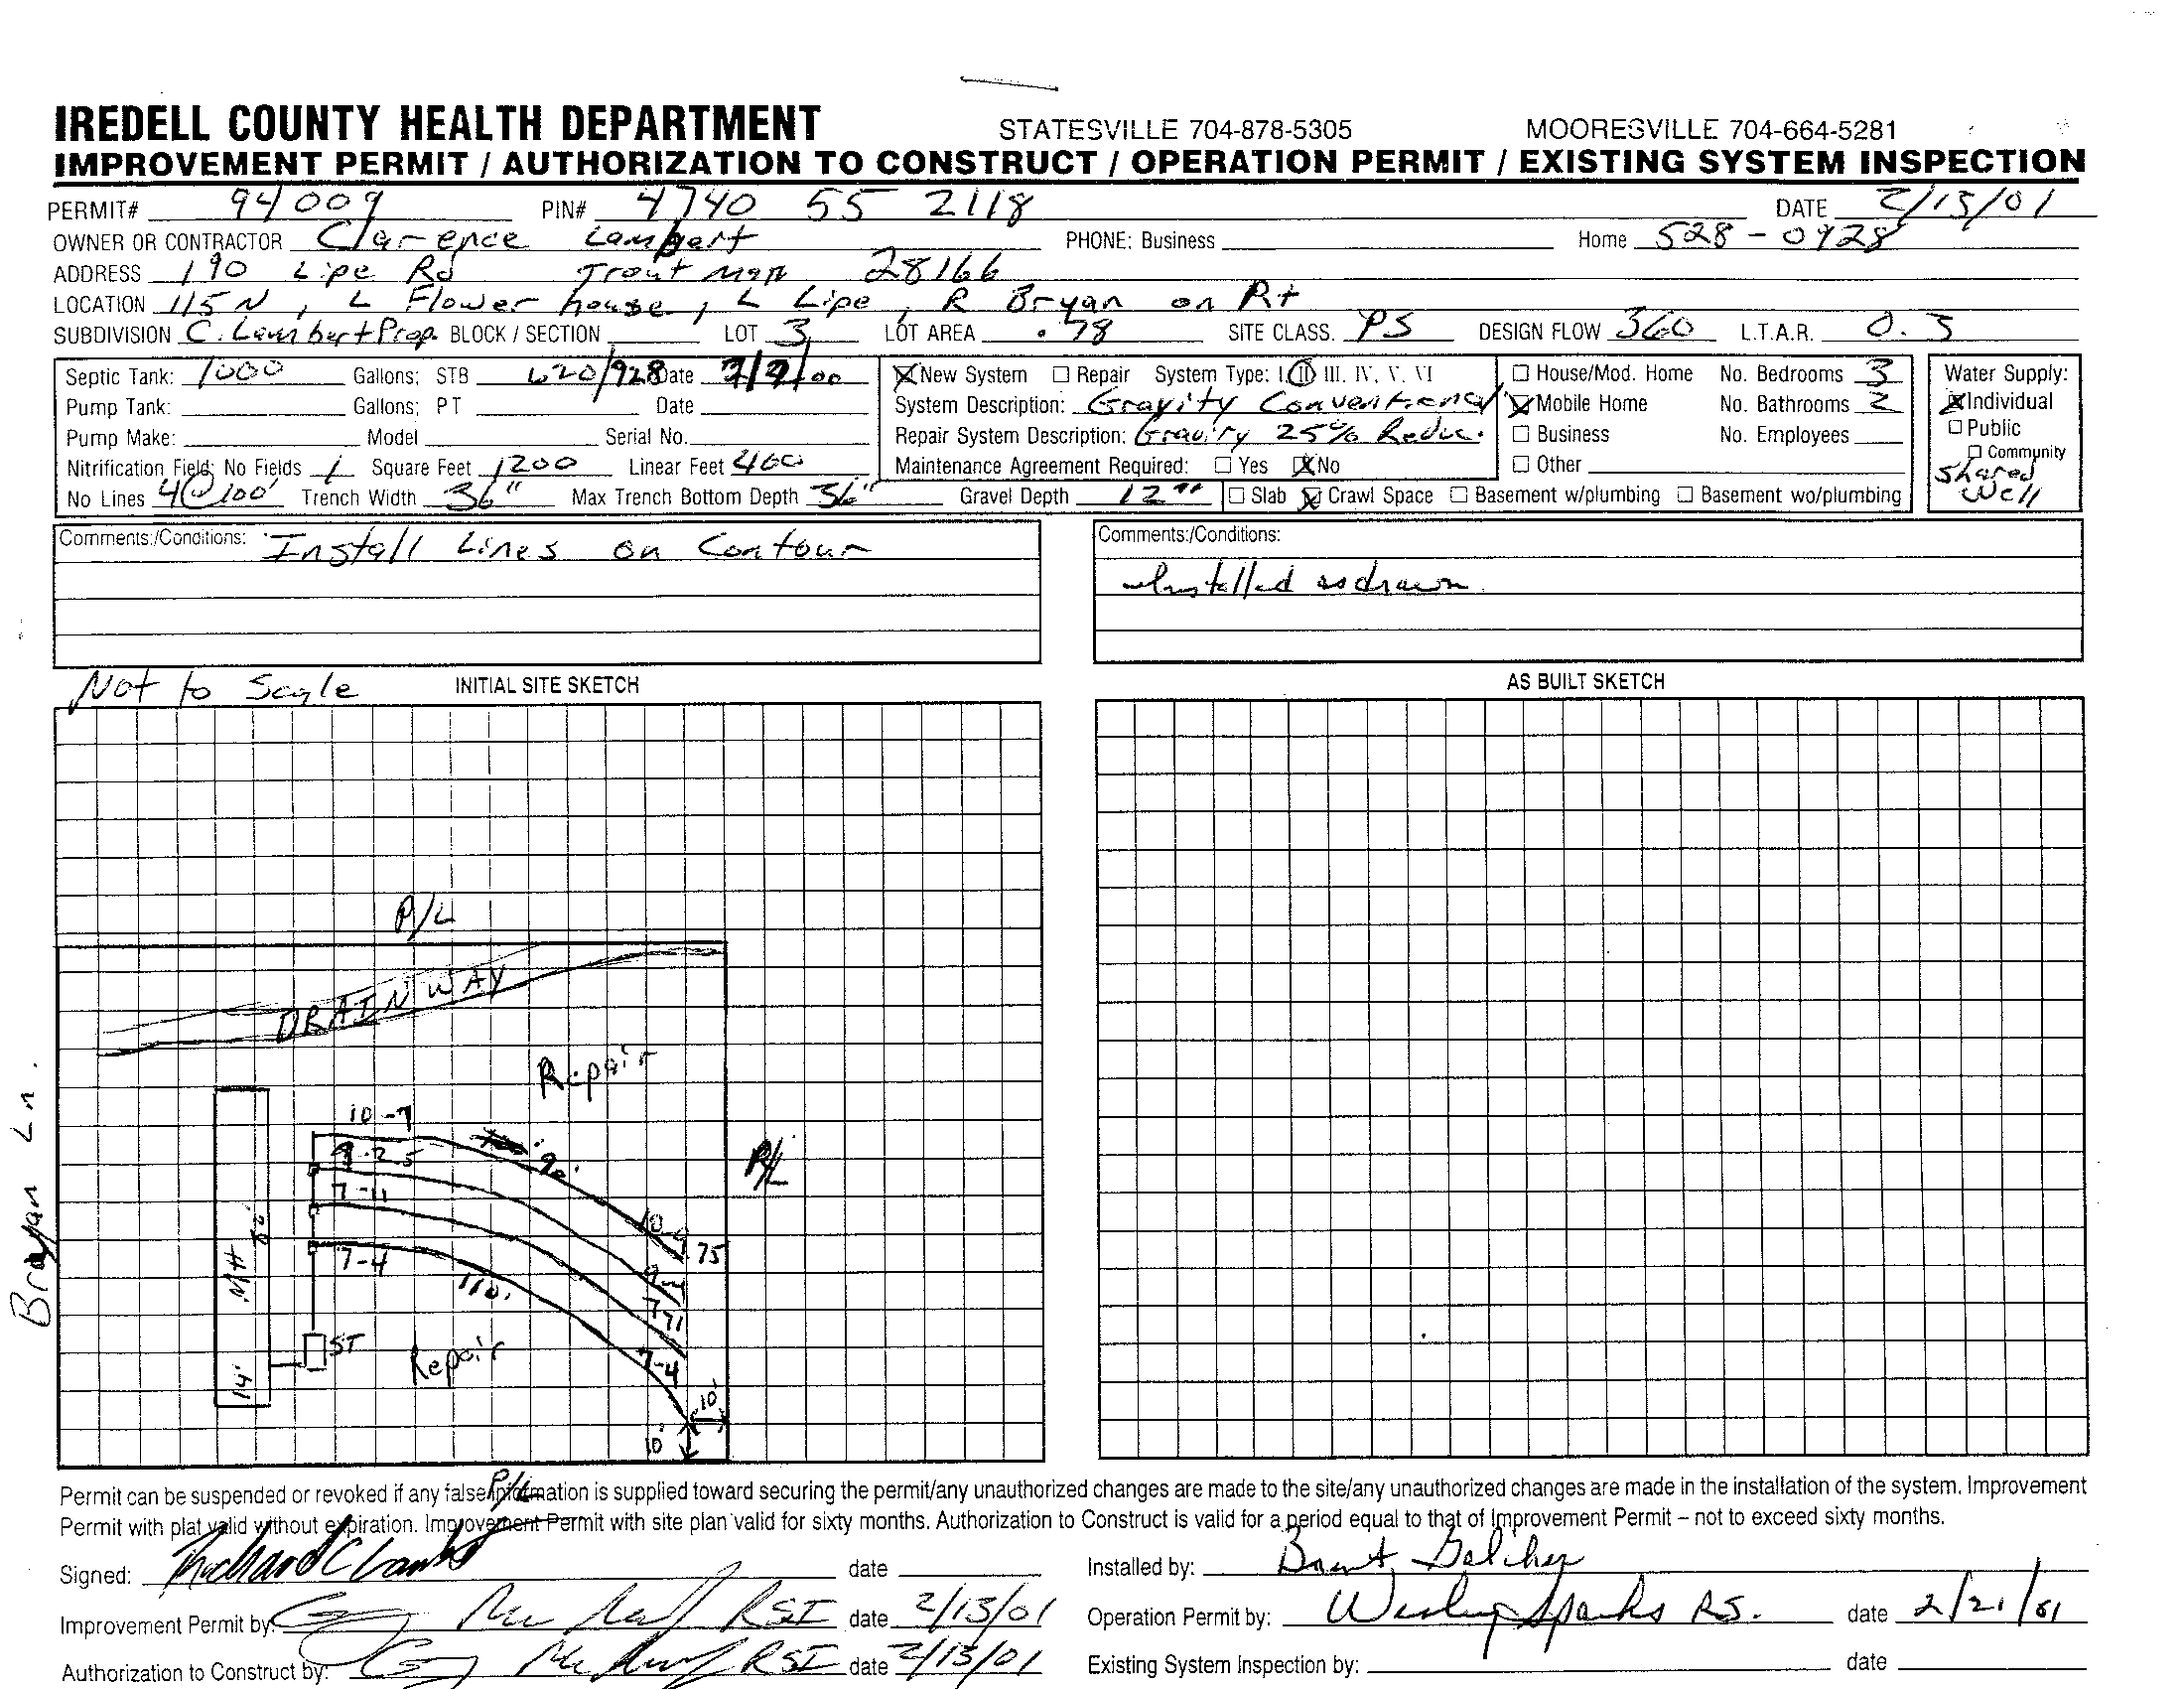 IREDELL COUNTY HEALTH DEPARTMENT STATESVILLE 704-878-5305 MOORESVILLE 704-664-5281
IMPROVEMENT PERMIT / AUTHORIZATION TO CONSTRUCT / OPERATION PERMIT / EXISTING SYSTEM INSPECTION
PERMIT# 94009 PIN# 4740 55 2118 DATE 2/13/01
OWNER OR CONTRACTOR Clarence Lambert PHONE: Business Home 528-0928
ADDRESS 190 Lipe Rd Troutman 28166
LOCATION 115 N, L Flower house, L Lipe, R Bryan on Rt
SUBDIVISION C. Lambert Prop. BLOCK / SECTION LOT 3 LOT AREA .78 SITE CLASS. PS DESIGN FLOW 360 L.T.A.R. 0.3
Septic Tank: 1000 Gallons; STB 620/928 Date
Pump Tank: Gallons; PT Date
Pump Make: Model Serial No.
Nitrification Field; No Fields 1 Square Feet 1200 Linear Feet 400
No Lines 4@100' Trench Width 36" Max Trench Bottom Depth 36" Gravel Depth 12"
New System Repair System Type: I. II III. IV. V. VI
System Description: Gravity Conventional
Repair System Description: Gravity 25% Reduc.
Maintenance Agreement Required: Yes No
House/Mod. Home No. Bedrooms 3
Mobile Home No. Bathrooms 2
Business No. Employees
Other
Slab Crawl Space Basement w/plumbing Basement wo/plumbing
Water Supply:
Individual
Public
Community
Shared
Well
Comments:/Conditions: Install Lines on Contour
Comments:/Conditions:
Installed as drawn
Not to Scale INITIAL SITE SKETCH AS BUILT SKETCH
P/L
DRAINWAY
Repair
10-7
9-25
90'
P/L
7-11
80'
10-9
75
7-4
MH
110'
9-
7-11
ST
Repair
7-4
14'
10'
10'
Bryan Ln.
P/L
Permit can be suspended or revoked if any false information is supplied toward securing the permit/any unauthorized changes are made to the site/any unauthorized changes are made in the installation of the system. Improvement
Permit with plat valid without expiration. Improvement Permit with site plan valid for sixty months. Authorization to Construct is valid for a period equal to that of Improvement Permit – not to exceed sixty months.
Signed: date Installed by: Brent
Improvement Permit by: RSI date 2/13/01 Operation Permit by: Wesley Sparks RS. date 2/21/01
Authorization to Construct by: RSI date 2/13/01 Existing System Inspection by: date